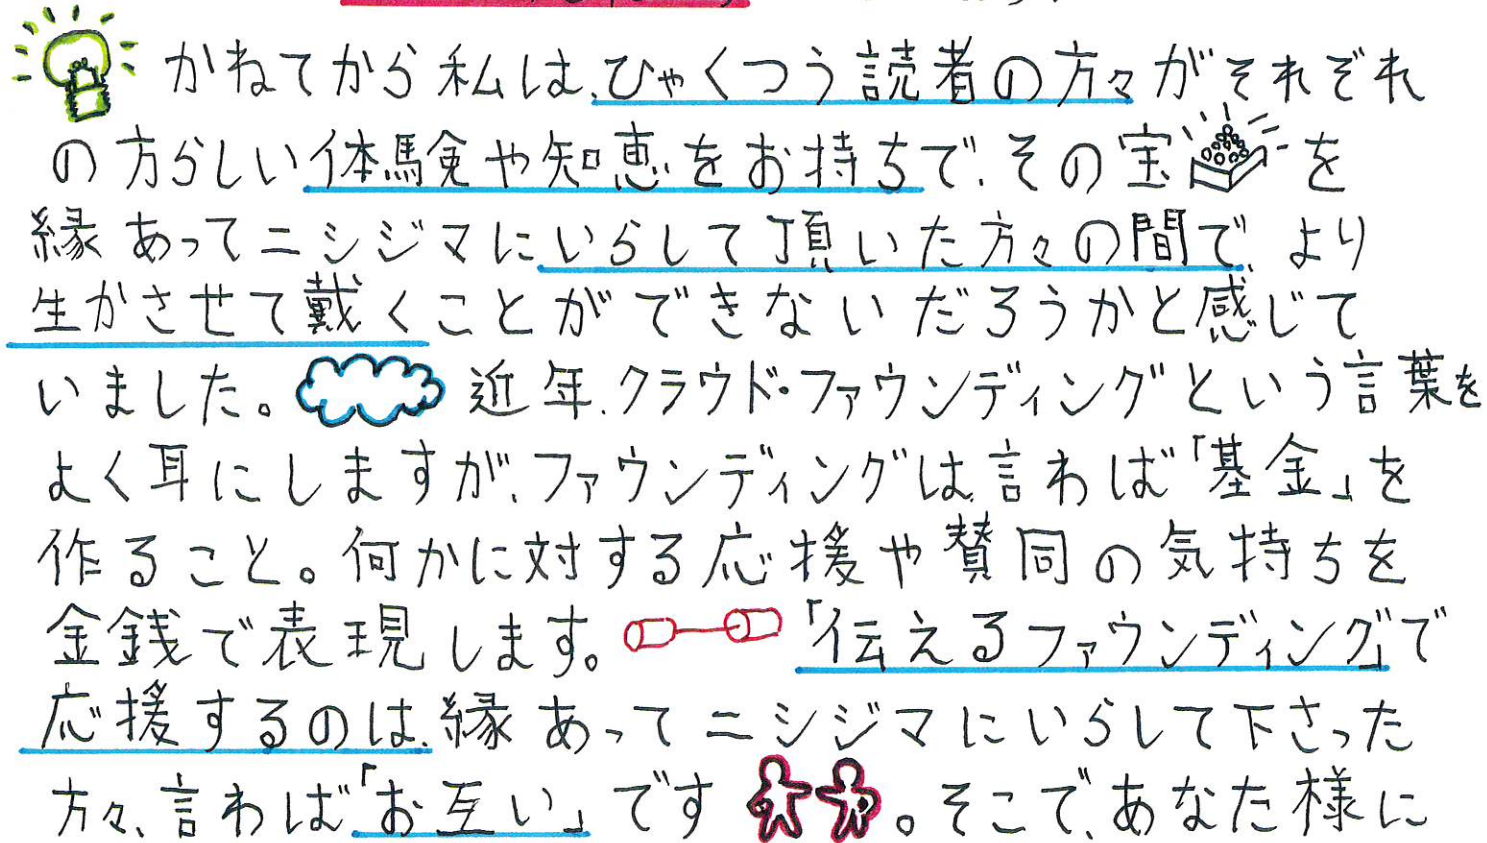 かねてから私は、ひゃくつう読者の方々がそれぞれ
の方らしい体験や知恵をお持ちで、その宝を
縁あってニシジマにいらして頂いた方々の間で、より
生かさせて戴くことができないだろうかと感じて
いました。近年、クラウド・ファウンディングという言葉を
よく耳にしますが、ファウンディングは言わば「基金」を
作ること。何かに対する応援や賛同の気持ちを
金銭で表現します。「伝えるファウンディング」で
応援するのは、縁あってニシジマにいらして下さった
方々、言わば「お互い」です。そこで、あなた様に